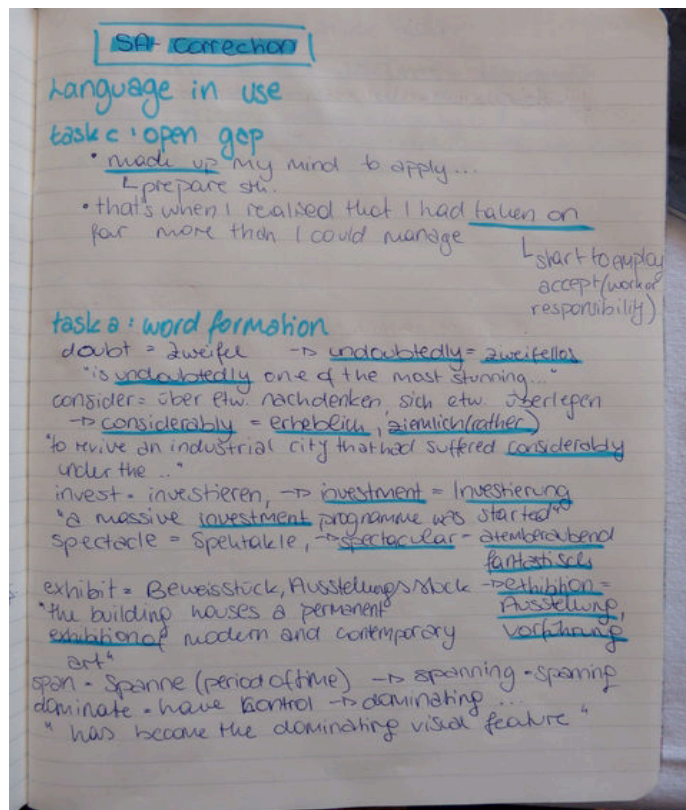 SA- correction
Language in use
task c: open gap
• made up my mind to apply...
↳ prepare sth.
• that's when I realised that I had taken on
far more than I could manage
↳ start to employ
accept (work or
responsibility)
task a: word formation
doubt = Zweifel → undoubtedly = zweifellos
"is undoubtedly one of the most stunning..."
consider = über etw. nachdenken, sich etw. überlegen
→ considerably = erheblich, ziemlich (rather)
"to revive an industrial city that had suffered considerably
under the .."
invest = investieren, → investment = Investierung
"a massive investment programme was started"
spectacle = Spektakle, → spectacular = atemberaubend
fantastisch
exhibit = Beweisstück, Ausstellungsstück → exhibition =
"the building houses a permanent Ausstellung,
exhibition of modern and contemporary Vorführung
art"
span = Spanne (period of time) → spanning =
dominate = have control → dominating ...
" has become the dominating visual feature "